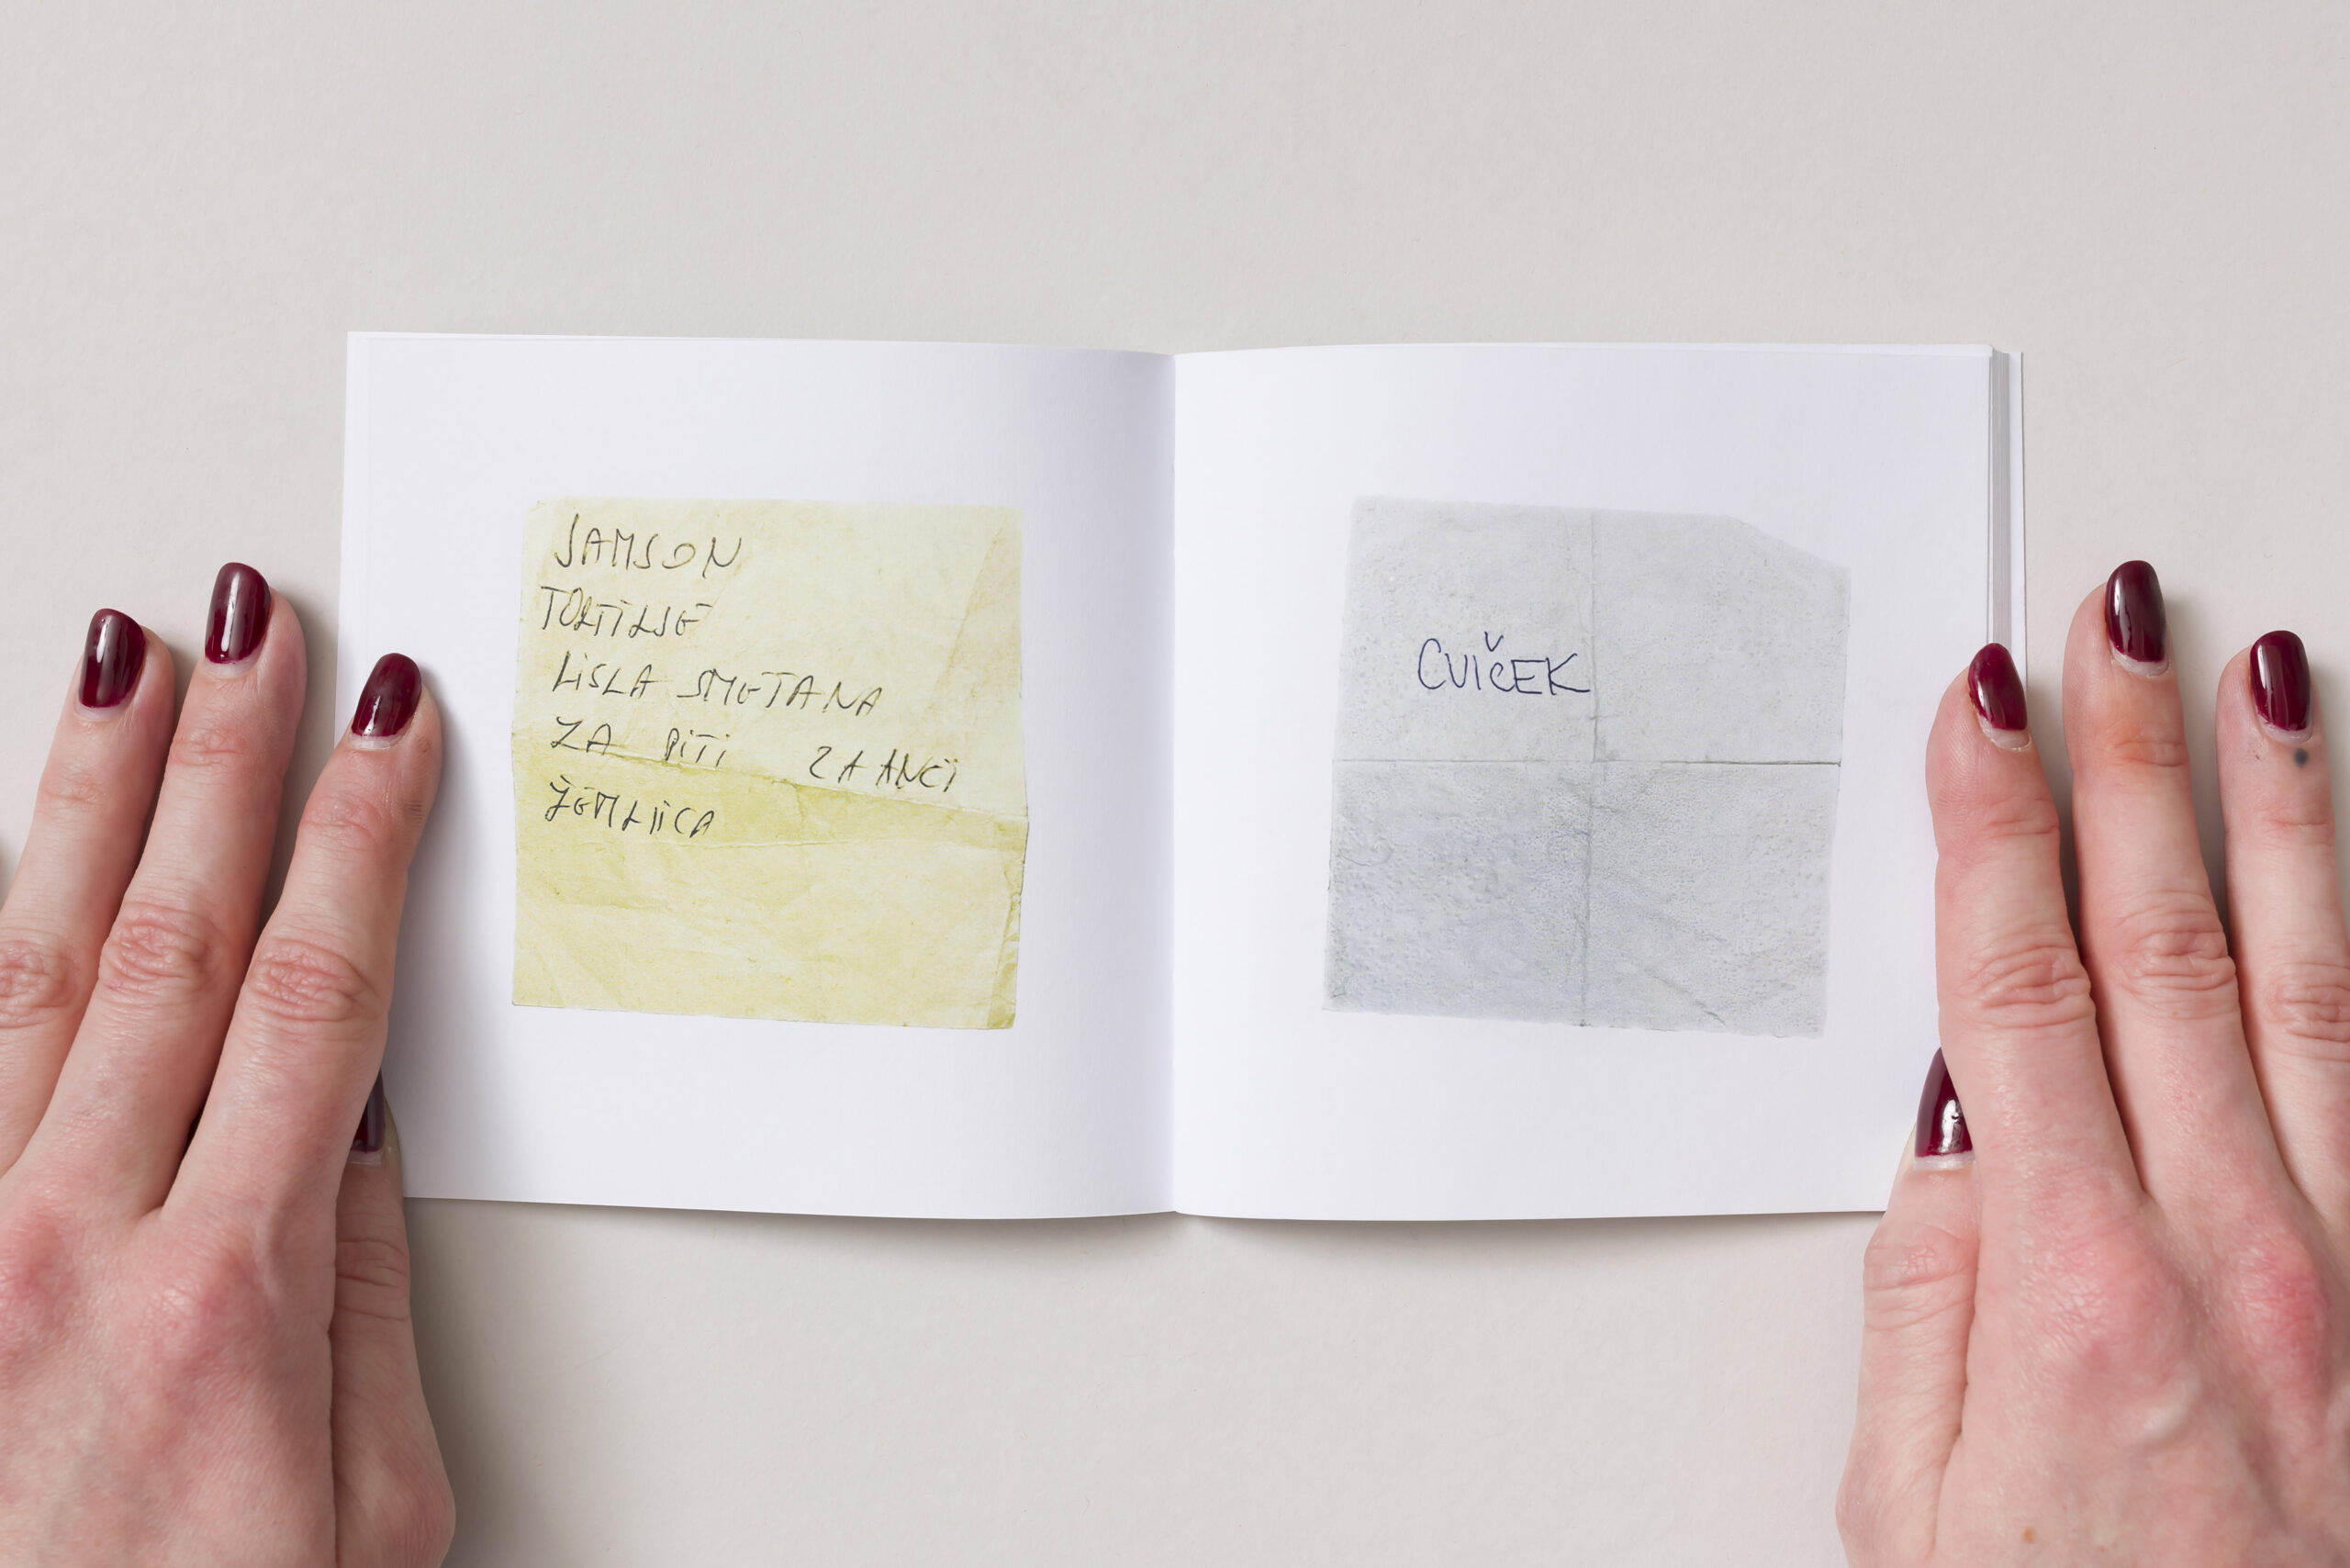 SAMSON
TORTILJE
KISLA SMETANA
ZA PITI ZA ANCI
ŽEMLJICA
CVIČEK